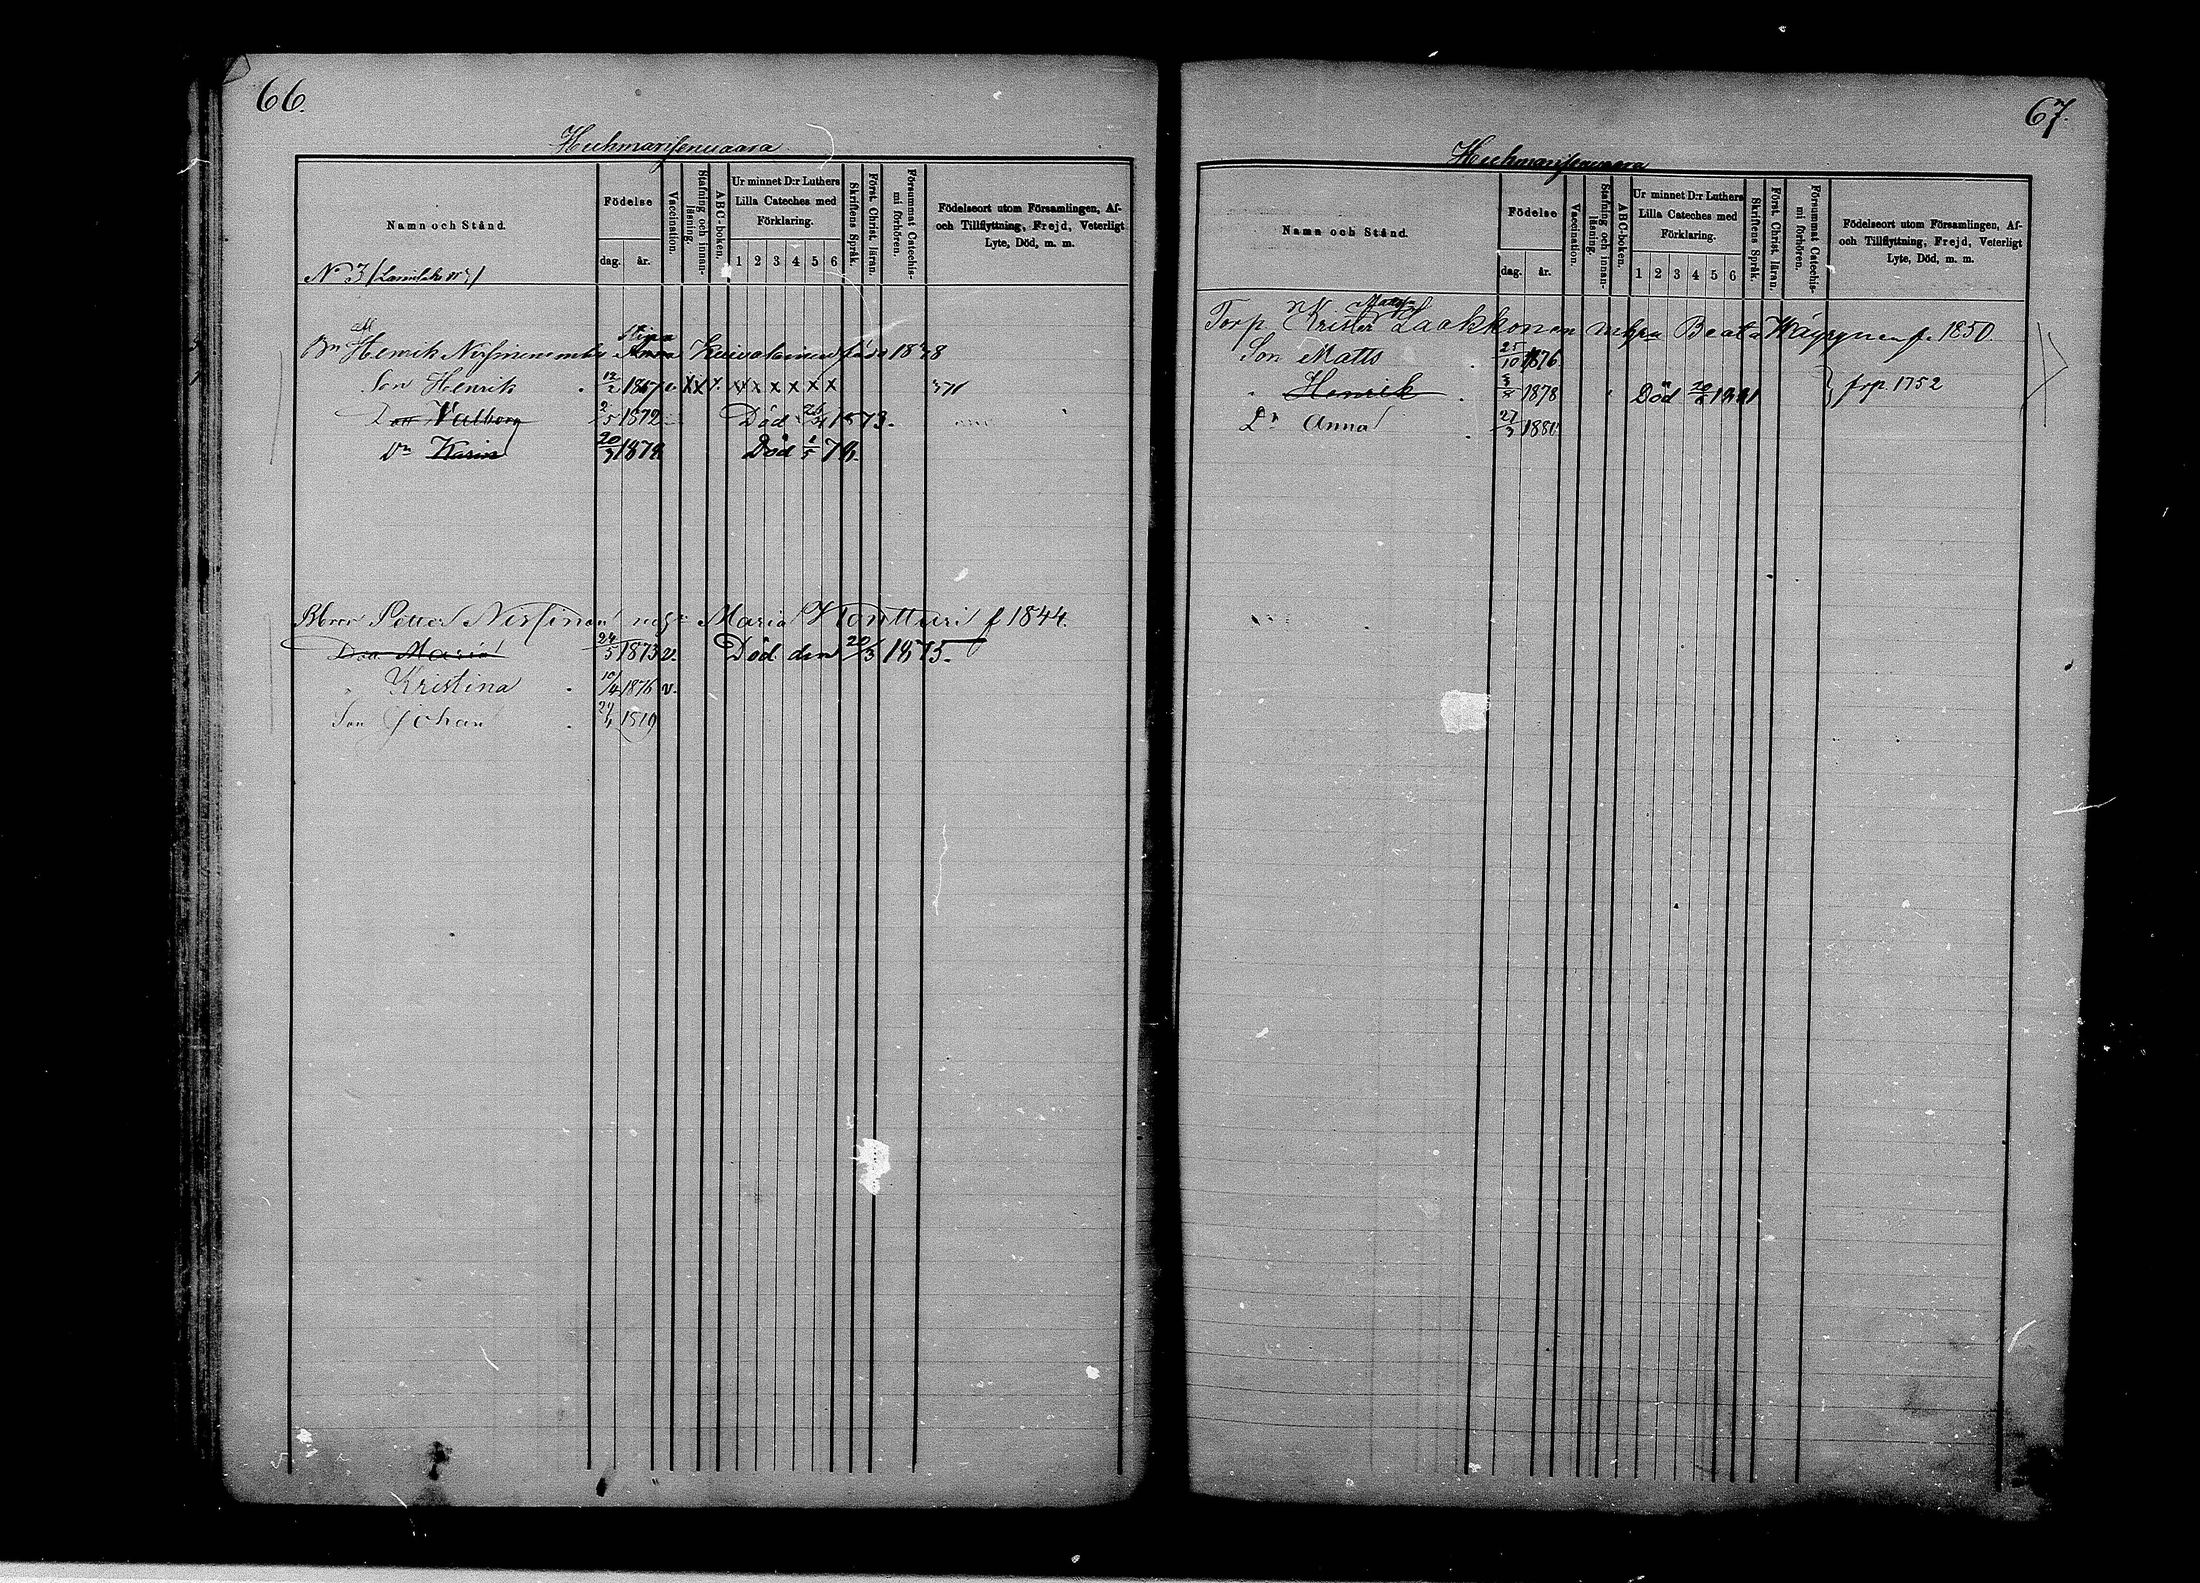 66.
Huhmarisenvaara
Namn och Stånd.
Födelse
dag. år.
Vaccination.
Stafning och innan-läsning.
ABC-boken.
Ur minnet D:r Luthers Lilla Cateches med Förklaring.
1 2 3 4 5 6
Skriftens Språk.
Först. Christ. läran.
Försummat Catechismi förhören.
Födelseort utom Församlingen, Af-
och Tillflyttning, Frejd, Veterligt
Lyte, Död, m. m.
No 3
Henrik Stina född 1838
Son Henrik 12/2 1867 v. X X X X X X
Valborg 2/5 1872 Död 1873.
Dn Karin 20/3 187 Död 1/5 78.
Petter Maria Kontturi f 1844.
Maria 24/5 1873 v. Död den 20/3 1875.
" Kristina 10/4 1876 v.
Son Johan
67.
Huhmarisenvaara
Namn och Stånd.
Födelse
dag. år.
Vaccination.
Stafning och innan-läsning.
ABC-boken.
Ur minnet D:r Luthers Lilla Cateches med Förklaring.
1 2 3 4 5 6
Skriftens Språk.
Först. Christ. läran.
Försummat Catechismi förhören.
Födelseort utom Församlingen, Af-
och Tillflyttning, Frejd, Veterligt
Lyte, Död, m. m.
Torp. Krister Laakkonen Beata Wäyrynen f. 1850.
Son Matts 25/10 1876
" Henrick 1878 Död } frp. 1752
Dr Anna 27/3 1880